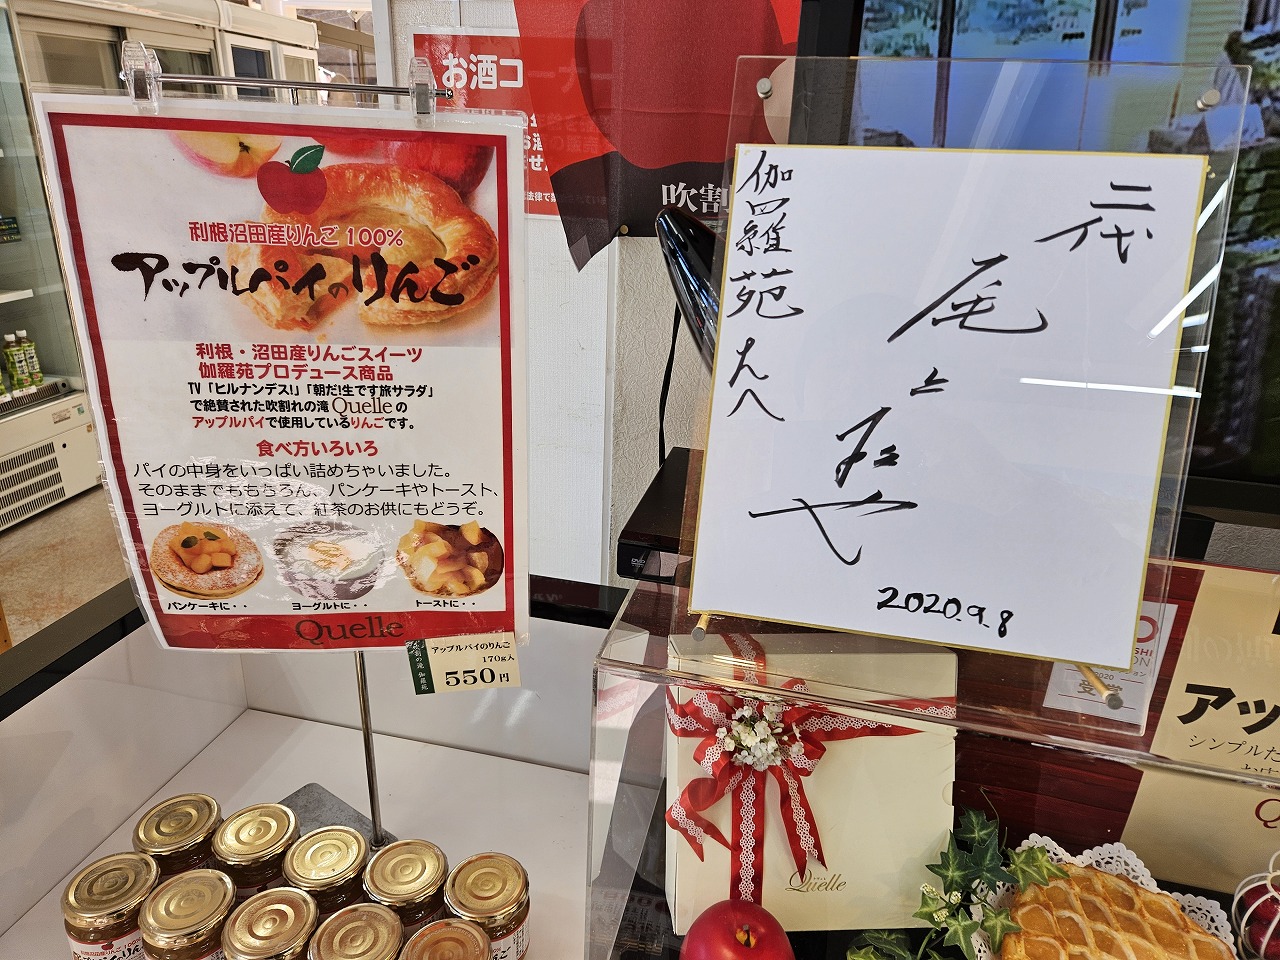 お酒コ
吹割
利根沼田産りんご100%
アップルパイのりんご
利根・沼田産りんごスイーツ
伽羅苑プロデュース商品
TV「ヒルナンデス!」「朝だ!生です旅サラダ」
で絶賛された吹割れの滝Quelleの
アップルパイで使用しているりんごです。
食べ方いろいろ
パイの中身をいっぱい詰めちゃいました。
そのままでももちろん、パンケーキやトースト、
ヨーグルトに添えて、紅茶のお供にもどうぞ。
パンケーキに・・
ヨーグルトに・・
トーストに・・
Quelle
吹割の滝 伽羅苑
アップルパイのりんご
170g入
550円
二代
尾上
松也
伽羅苑さんへ
2020.9.8
受賞
アッ
シンプルた
Quelle
利根沼田産りんご100%
アップルパイのりんご